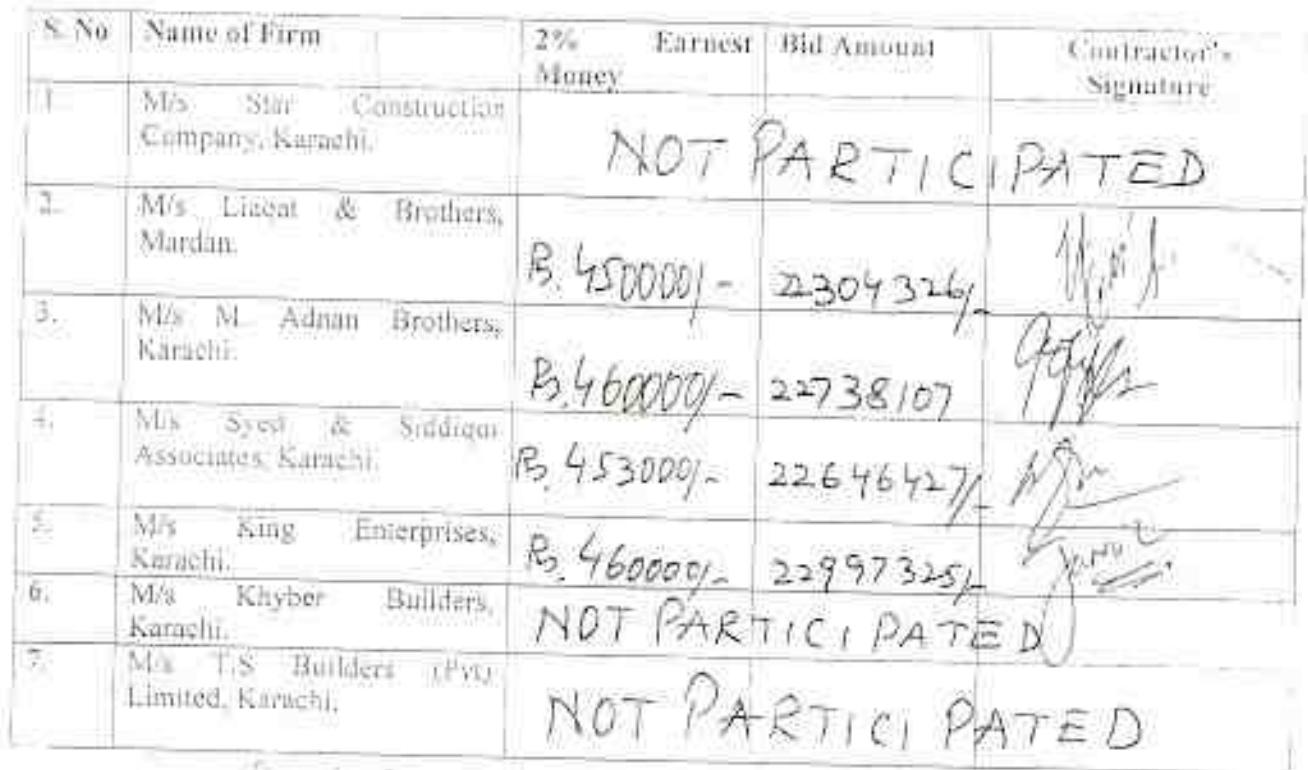 S. No Name of Firm 2% Earnest Money Bid Amount Contractor's Signature
1 M/s Star Construction Company, Karachi. NOT PARTICIPATED
2. M/s Liaqat & Brothers, Mardan. Rs. 450000/- 23043264/-
3. M/s M. Adnan Brothers, Karachi. Rs. 460000/- 22738107
4. M/s Syed & Siddiqui Associates, Karachi. Rs. 453000/- 22646427/-
5. M/s King Enterprises, Karachi. Rs. 460000/- 22997325/-
6. M/s Khyber Builders, Karachi. NOT PARTICIPATED
7. M/s T.S Builders (Pvt) Limited, Karachi. NOT PARTICIPATED